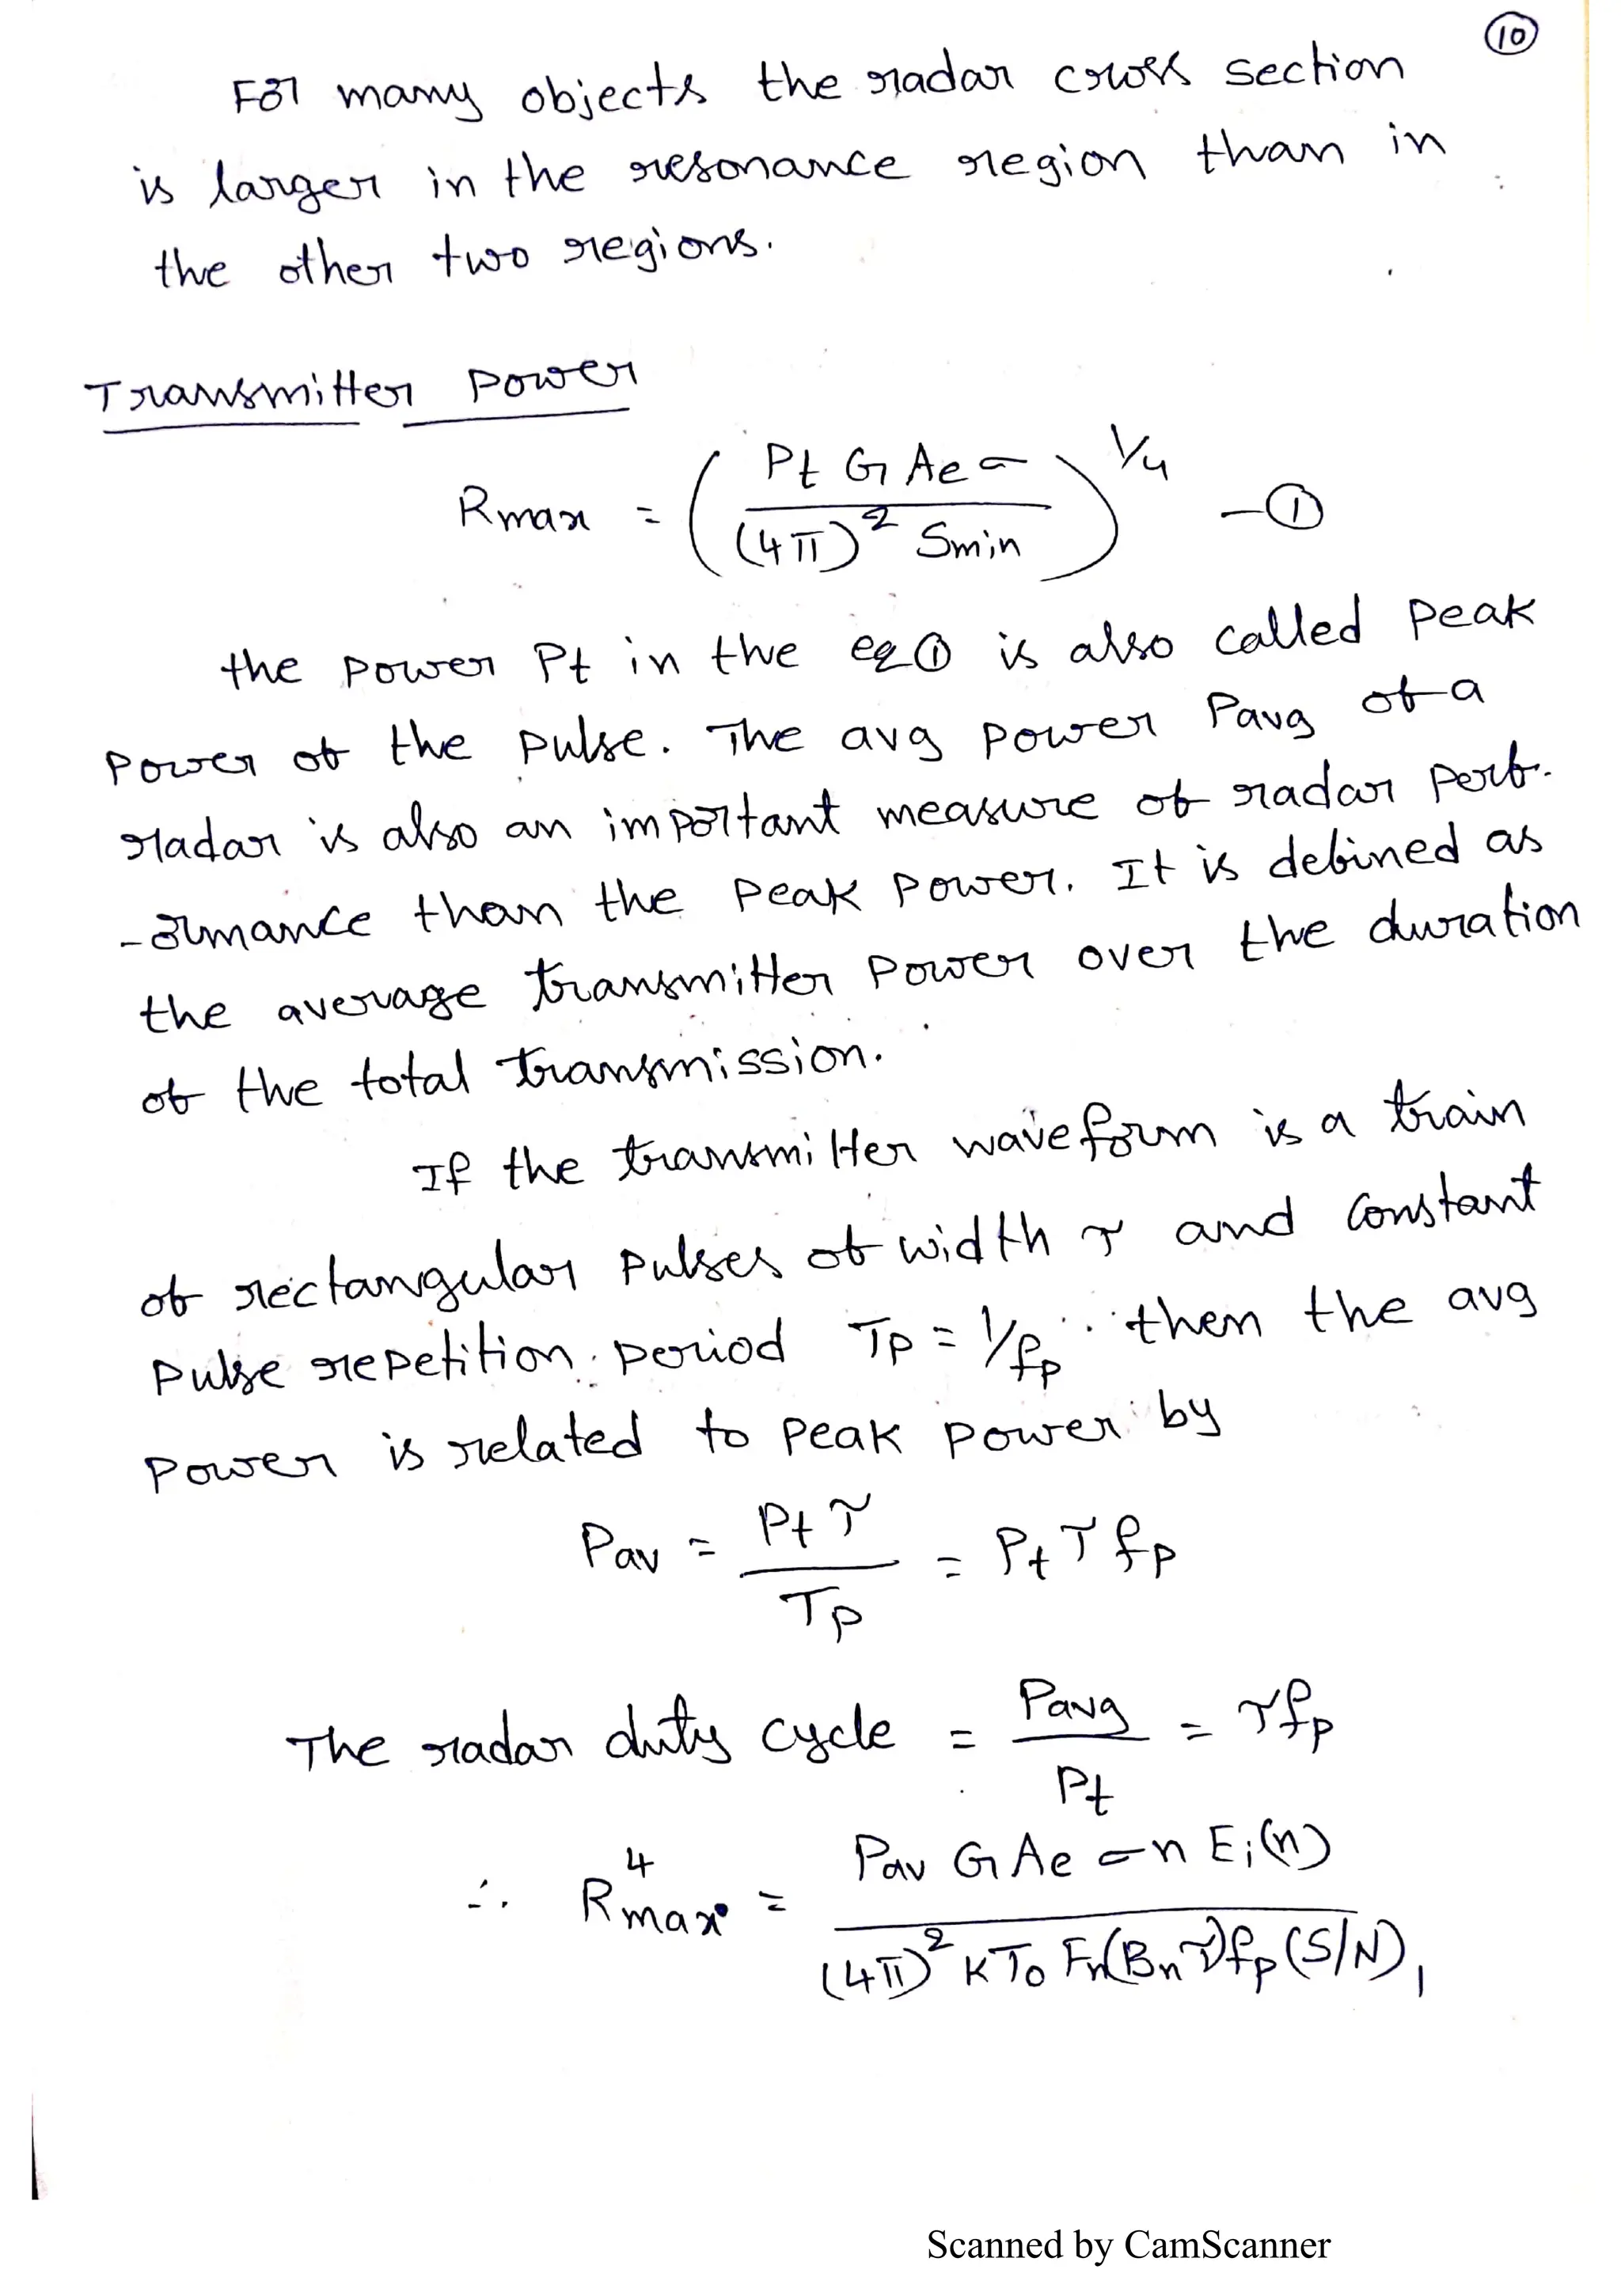 10
For many objects the radar cross section
is larger in the resonance region than in
the other two regions.
Transmitter Power
Rmax = (Pt G Ae σ / (4π)² Smin)^1/4 - ①
the power Pt in the eq ① is also called peak
power of the pulse. The avg power Pavg of a
radar is also an important measure of radar perf-
-ormance than the peak power. It is defined as
the average transmitter power over the duration
of the total transmission.
If the transmitter waveform is a train
of rectangular pulses of width τ and constant
pulse repetition period Tp = 1/fp then the avg
power is related to peak power by
Pav = Pt τ / Tp = Pt τ fp
The radar duty cycle = Pavg / Pt = τ fp
∴ R⁴max = Pav G Ae σ n Ei(n) / (4π)² K To Fn (Bn τ) fp (S/N)₁
Scanned by CamScanner